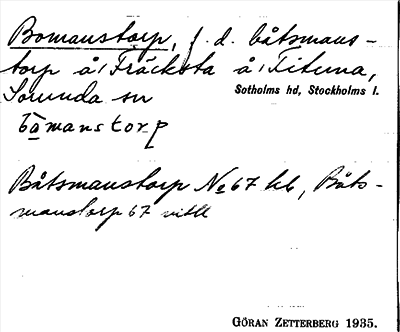 Bomanstorp, f. d. båtsmans-
torp å Fräcksta å Fituna,
Sorunda sn
Sotholms hd, Stockholms l.
båmanstorp
Båtsmanstorp No 67 kb, Båts-
manstorp 67
GÖRAN ZETTERBERG 1935.